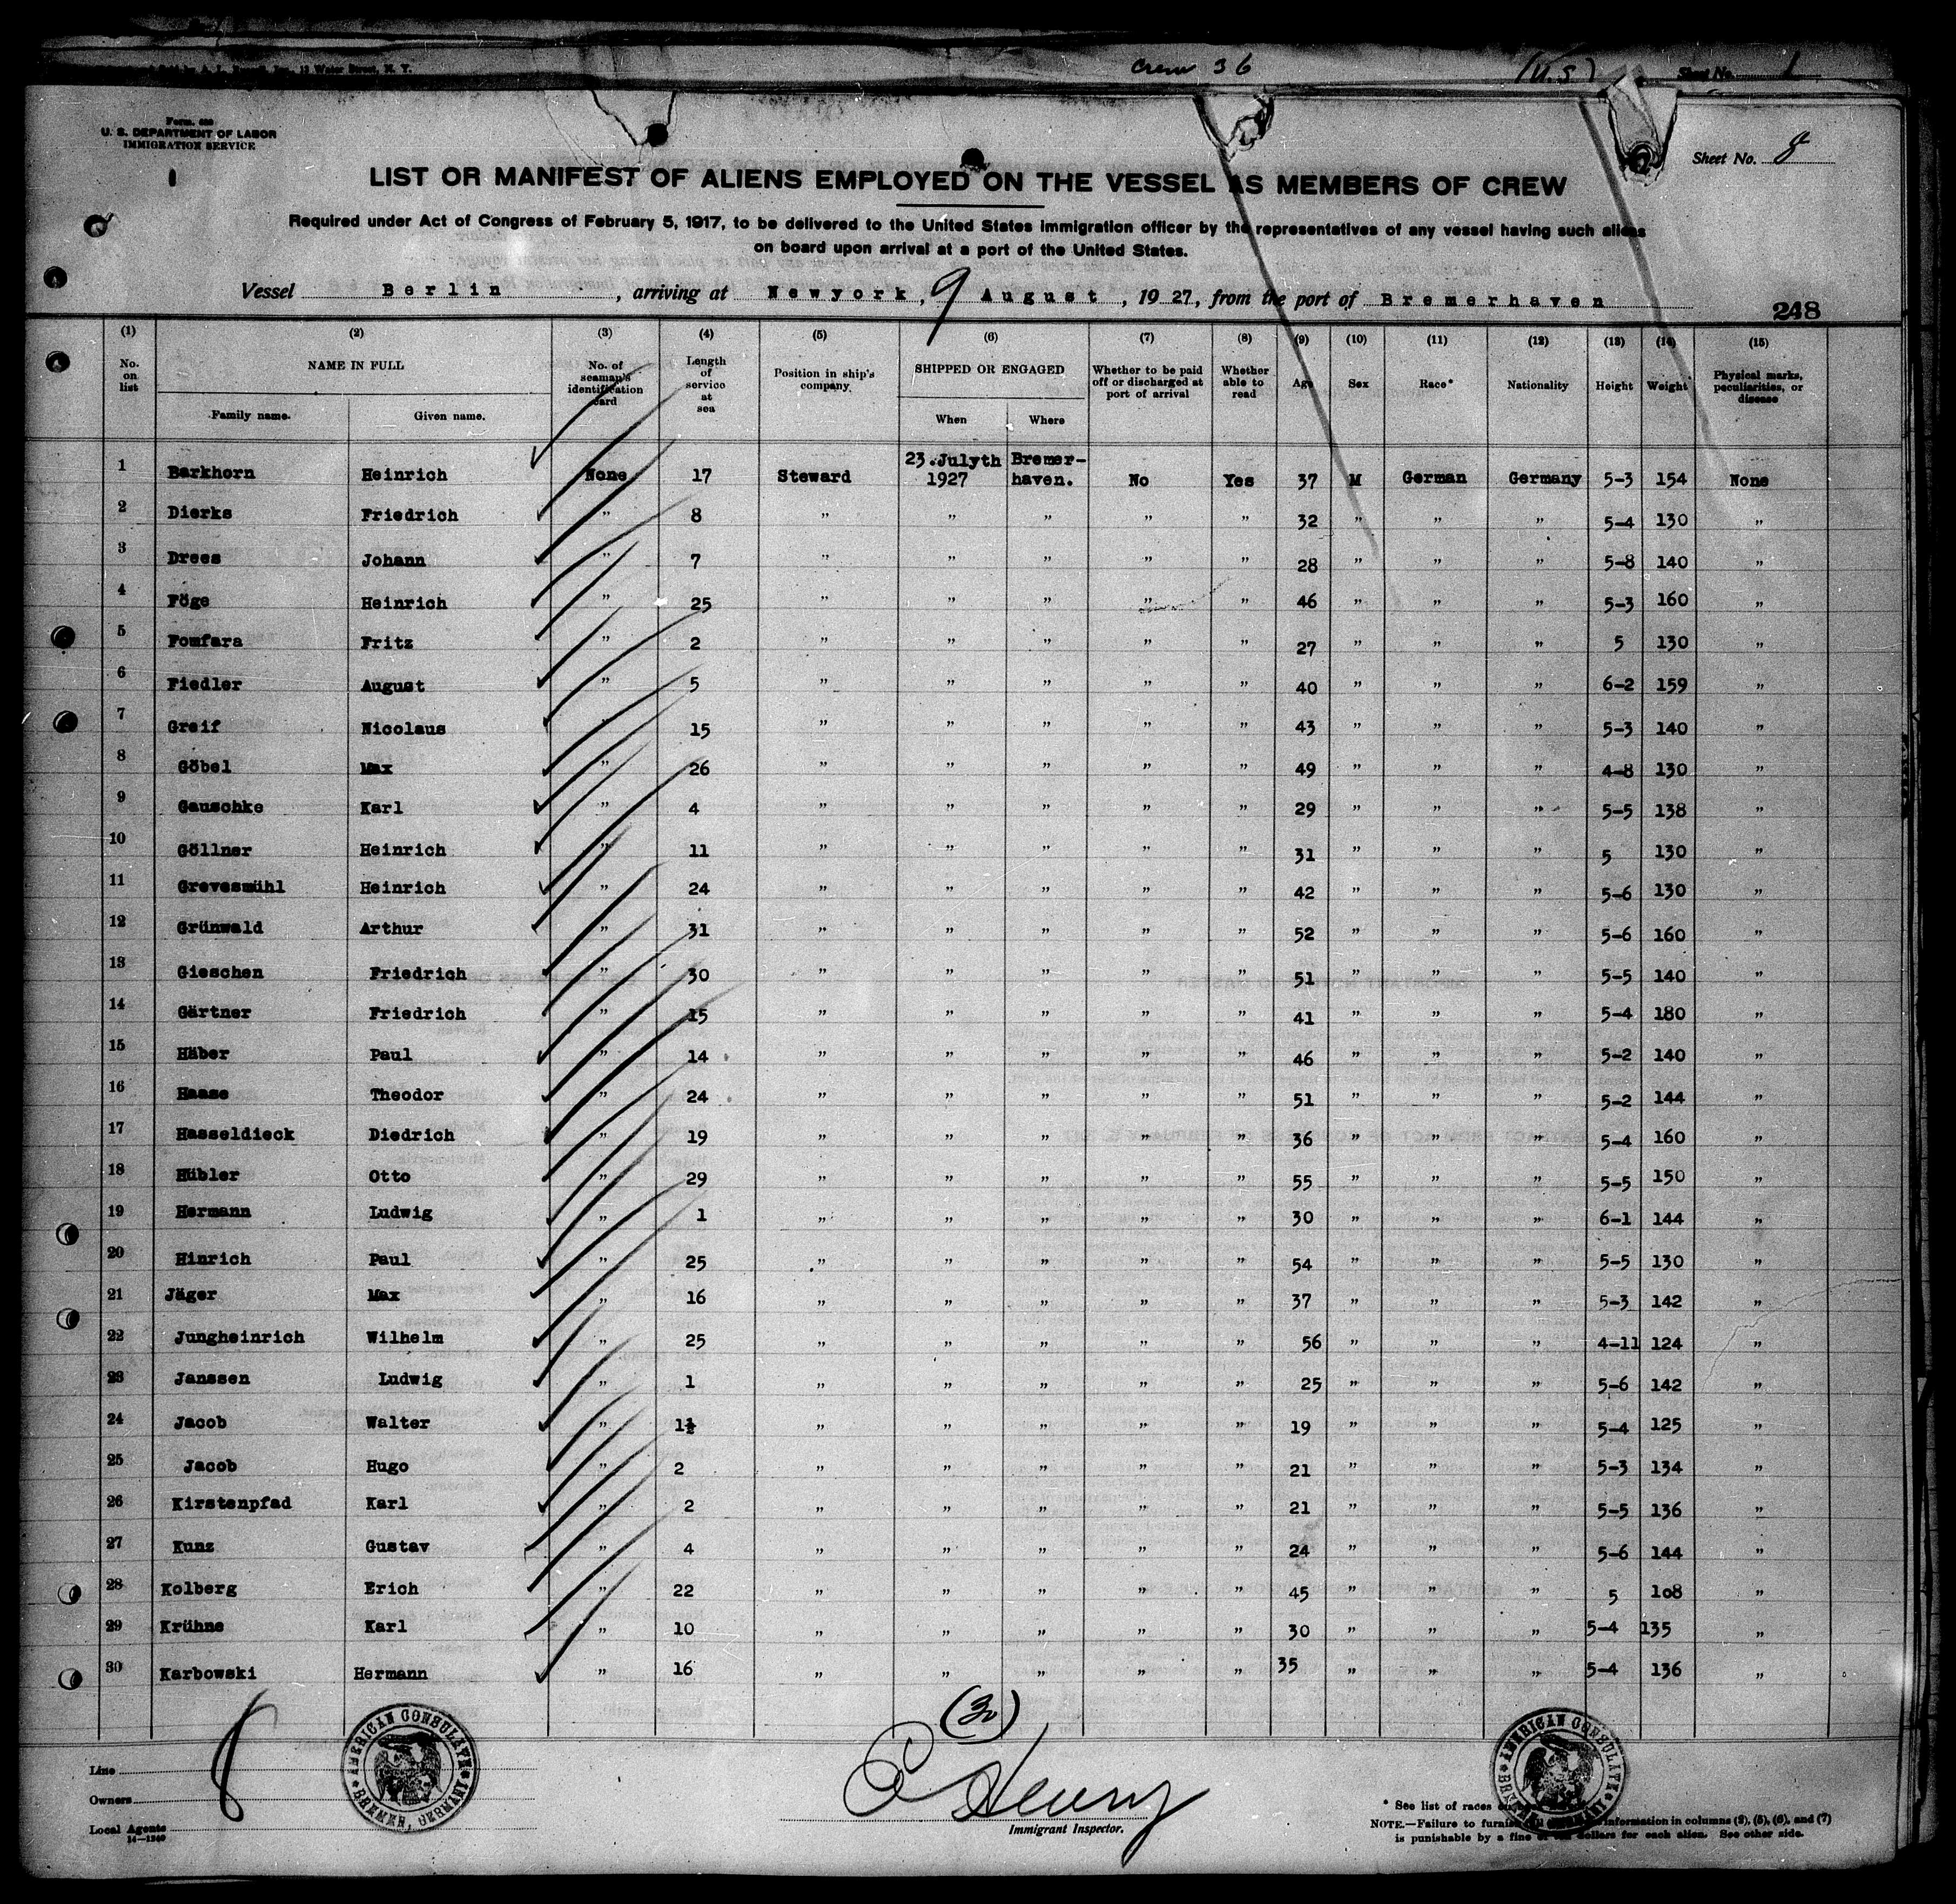 Crew 36 (U.S) Sheet No. 1
Form 680
U. S. DEPARTMENT OF LABOR
IMMIGRATION SERVICE
Sheet No. 8
LIST OR MANIFEST OF ALIENS EMPLOYED ON THE VESSEL AS MEMBERS OF CREW
Required under Act of Congress of February 5, 1917, to be delivered to the United States immigration officer by the representatives of any vessel having such aliens
on board upon arrival at a port of the United States.
Vessel Berlin, arriving at Newyork, 9 August, 1927, from the port of Bremerhaven
248
(1) (2) (3) (4) (5) (6) (7) (8) (9) (10) (11) (12) (13) (14) (15)
No. on list NAME IN FULL Family name. Given name. No. of seaman's identification card Length of service at sea Position in ship's company SHIPPED OR ENGAGED When Where Whether to be paid off or discharged at port of arrival Whether able to read Age Sex Race* Nationality Height Weight Physical marks, peculiarities, or disease
1 Barkhorn Heinrich None 17 Steward 23.Julyth 1927 Bremer-haven. No Yes 37 M German Germany 5-3 154 None
2 Dierks Friedrich " 8 " " " " " 32 " " " 5-4 130 "
3 Drees Johann " 7 " " " " " 28 " " " 5-8 140 "
4 Föge Heinrich " 25 " " " " " 46 " " " 5-3 160 "
5 Fomfara Fritz " 2 " " " " " 27 " " " 5 130 "
6 Fiedler August " 5 " " " " " 40 " " " 6-2 159 "
7 Greif Nicolaus " 15 " " " " " 43 " " " 5-3 140 "
8 Göbel Max " 26 " " " " " 49 " " " 4-8 130 "
9 Gauschke Karl " 4 " " " " " 29 " " " 5-5 138 "
10 Göllner Heinrich " 11 " " " " " 31 " " " 5 130 "
11 Grevesmühl Heinrich " 24 " " " " " 42 " " " 5-6 130 "
12 Grünwald Arthur " 31 " " " " " 52 " " " 5-6 160 "
13 Gieschen Friedrich " 30 " " " " " 51 " " " 5-5 140 "
14 Gärtner Friedrich " 15 " " " " " 41 " " " 5-4 180 "
15 Häber Paul " 14 " " " " " 46 " " " 5-2 140 "
16 Haase Theodor " 24 " " " " " 51 " " " 5-2 144 "
17 Hasseldieck Diedrich " 19 " " " " " 36 " " " 5-4 160 "
18 Hübler Otto " 29 " " " " " 55 " " " 5-5 150 "
19 Hermann Ludwig " 1 " " " " " 30 " " " 6-1 144 "
20 Hinrich Paul " 25 " " " " " 54 " " " 5-5 130 "
21 Jäger Max " 16 " " " " " 37 " " " 5-3 142 "
22 Jungheinrich Wilhelm " 25 " " " " " 56 " " " 4-11 124 "
23 Janssen Ludwig " 1 " " " " " 25 " " " 5-6 142 "
24 Jacob Walter " 1½ " " " " " 19 " " " 5-4 125 "
25 Jacob Hugo " 2 " " " " " 21 " " " 5-3 134 "
26 Kirstenpfad Karl " 2 " " " " " 21 " " " 5-5 136 "
27 Kunz Gustav " 4 " " " " " 24 " " " 5-6 144 "
28 Kolberg Erich " 22 " " " " " 45 " " " 5 108 "
29 Krühne Karl " 10 " " " " " 30 " " " 5-4 135 "
30 Karbowski Hermann " 16 " " " " " 35 " " " 5-4 136 "
(30)
8
AMERICAN CONSULATE BREMEN, GERMANY
E Henry
AMERICAN CONSULATE
Line
Owners
Local Agents
14—1240
Immigrant Inspector.
* See list of races
NOTE.—Failure to furnish information in columns (2), (5), (6), and (7)
is punishable by a fine of ten dollars for each alien. See other side.